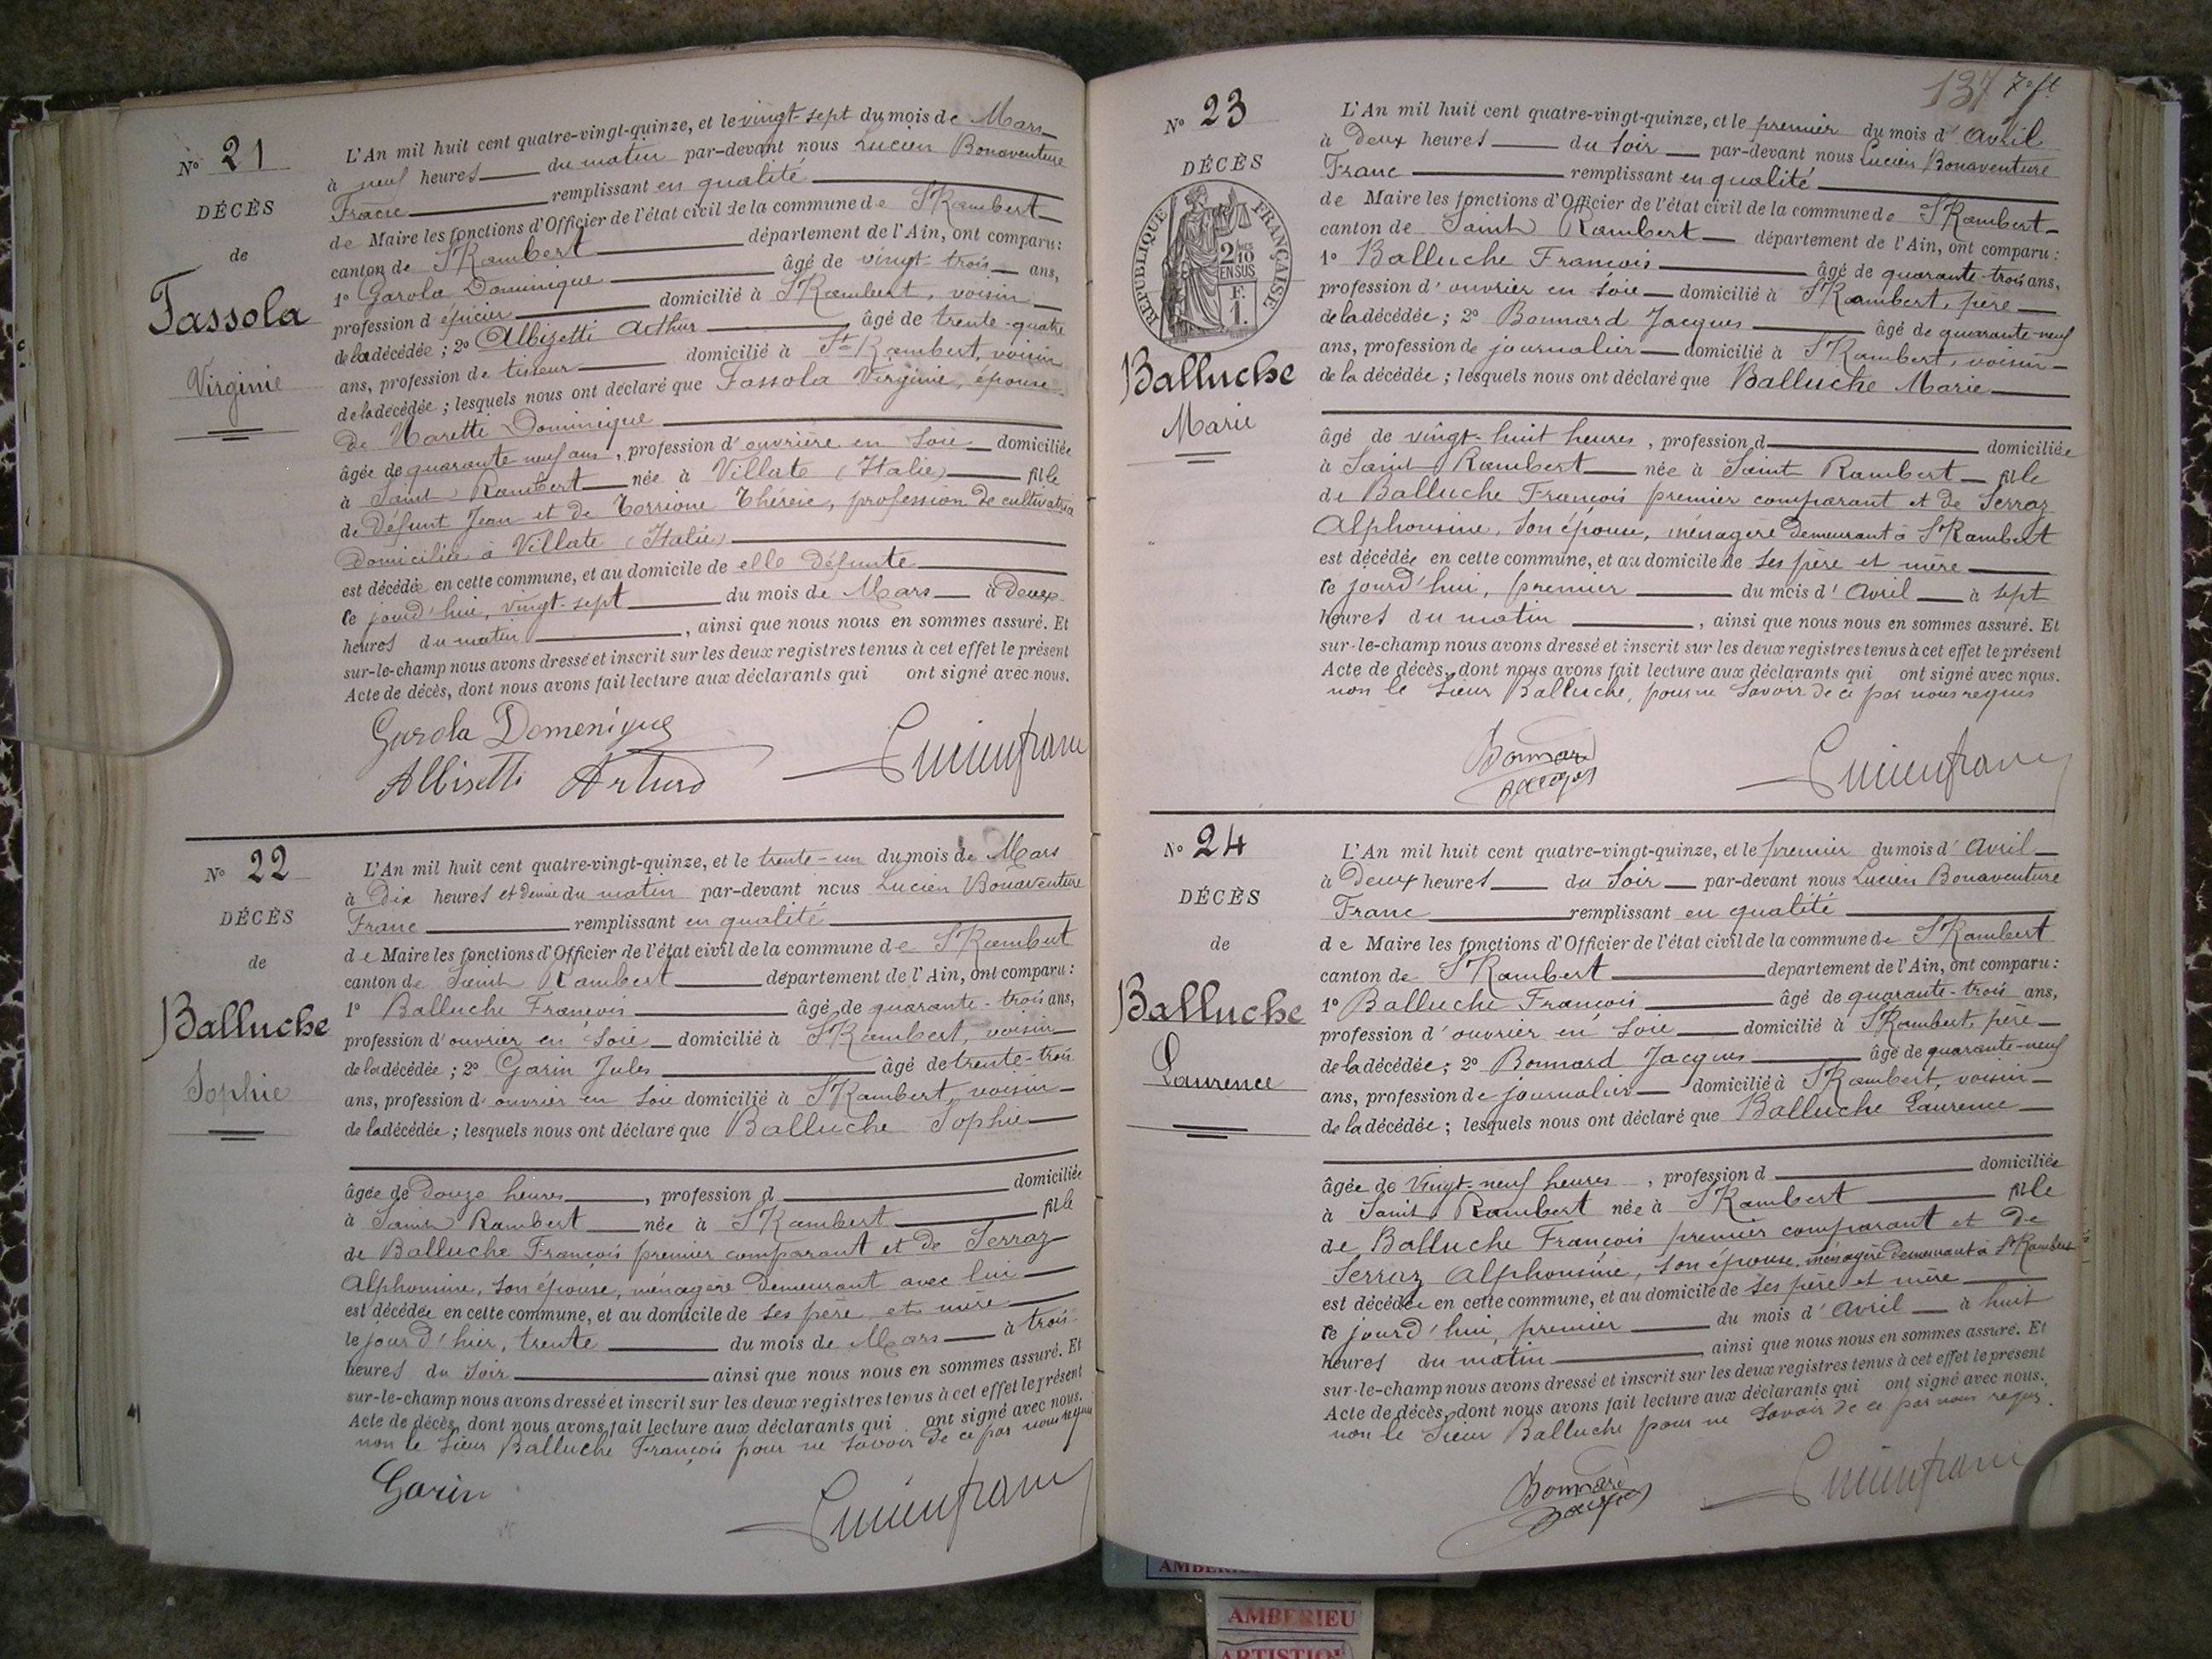 No 21
DÉCÈS
de
Fassola
Virginie
L'An mil huit cent quatre-vingt-quinze, et le vingt-sept du mois de Mars
à neuf heures du matin par-devant nous Lucien Bonaventure
Franc remplissant en qualité
de Maire les fonctions d'Officier de l'état civil de la commune de St Rambert
canton de St Rambert département de l'Ain, ont comparu:
1o Garola Dominique âgé de vingt-trois ans,
profession d'épicier domicilié à St Rambert, voisin
de la décédée; 2o Albizetti Arthur âgé de trente-quatre
ans, profession de tisseur domicilié à St Rambert, voisin
de la décédée; lesquels nous ont déclaré que Fassola Virginie, épouse
de Dominique
âgée de quarante neuf ans, profession d'ouvrière en soie domiciliée
à Saint Rambert née à Villate (Italie) fille
de défunt Jean et de Torrione Thérèse, profession de cultivatrice
domiciliée à Villate (Italie)
est décédée en cette commune, et au domicile de elle défunte
ce jourd'hui, vingt-sept du mois de Mars à deux
heures du matin, ainsi que nous nous en sommes assuré. Et
sur-le-champ nous avons dressé et inscrit sur les deux registres tenus à cet effet le présent
Acte de décès, dont nous avons fait lecture aux déclarants qui ont signé avec nous.
Garola Domenique
Albisetti Arturo Lucien franc
No 22
DÉCÈS
de
Balluche
Sophie
L'An mil huit cent quatre-vingt-quinze, et le trente-un du mois de Mars
à Dix heures et demie du matin par-devant nous Lucien Bonaventure
Franc remplissant en qualité
de Maire les fonctions d'Officier de l'état civil de la commune de St Rambert
canton de Saint Rambert département de l'Ain, ont comparu:
1o Balluche François âgé de quarante-trois ans,
profession d'ouvrier en soie domicilié à St Rambert, voisin
de la décédée; 2o Garin Jules âgé de trente-trois
ans, profession d'ouvrier en soie domicilié à St Rambert, voisin
de la décédée; lesquels nous ont déclaré que Balluche Sophie
âgée de Douze heures, profession d domiciliée
à Saint Rambert née à St Rambert fille
de Balluche François premier comparant et de Serraz
Alphonsine, son épouse, ménagère demeurant avec lui
est décédée en cette commune, et au domicile de ses père et mère
le jour d'hier, trente du mois de Mars à trois
heures du soir ainsi que nous nous en sommes assuré. Et
sur-le-champ nous avons dressé et inscrit sur les deux registres tenus à cet effet le présent
Acte de décès, dont nous avons fait lecture aux déclarants qui ont signé avec nous.
non le sieur Balluche François pour ne savoir de ce par nous requis
Garin Lucien franc
137 7e ft
No 23
DÉCÈS
RÉPUBLIQUE FRANÇAISE
2/10 EN SUS
F. 1.
Balluche
Marie
L'An mil huit cent quatre-vingt-quinze, et le premier du mois d'Avril
à Deux heures du soir par-devant nous Lucien Bonaventure
Franc remplissant en qualité
de Maire les fonctions d'Officier de l'état civil de la commune de St Rambert
canton de Saint Rambert département de l'Ain, ont comparu:
1o Balluche François âgé de quarante-trois ans,
profession d'ouvrier en soie domicilié à St Rambert, père
de la décédée; 2o Bonnard Jacques âgé de quarante-neuf
ans, profession de journalier domicilié à St Rambert, voisin
de la décédée; lesquels nous ont déclaré que Balluche Marie
âgé de vingt-huit heures, profession d domiciliée
à Saint Rambert née à Saint Rambert fille
de Balluche François premier comparant et de Serraz
Alphonsine, son épouse, ménagère demeurant à St Rambert
est décédée en cette commune, et au domicile de ses père et mère
ce jourd'hui, premier du mois d'Avril à sept
heures du matin, ainsi que nous nous en sommes assuré. Et
sur-le-champ nous avons dressé et inscrit sur les deux registres tenus à cet effet le présent
Acte de décès, dont nous avons fait lecture aux déclarants qui ont signé avec nous.
non le sieur Balluche, pour ne savoir de ce par nous requis
Bonnard
Jacques Lucien franc
No 24
DÉCÈS
de
Balluche
Laurence
L'An mil huit cent quatre-vingt-quinze, et le premier du mois d'Avril
à Deux heures du soir par-devant nous Lucien Bonaventure
Franc remplissant en qualité
de Maire les fonctions d'Officier de l'état civil de la commune de St Rambert
canton de St Rambert département de l'Ain, ont comparu:
1o Balluche François âgé de quarante-trois ans,
profession d'ouvrier en soie domicilié à St Rambert, père
de la décédée; 2o Bonnard Jacques âgé de quarante-neuf
ans, profession de journalier domicilié à St Rambert, voisin
de la décédée; lesquels nous ont déclaré que Balluche Laurence
âgée de Vingt-neuf heures, profession d domiciliée
à Saint Rambert née à St Rambert fille
de Balluche François premier comparant et de
Serraz Alphonsine, son épouse, ménagère demeurant à St Rambert
est décédée en cette commune, et au domicile de ses père et mère
ce jourd'hui, premier du mois d'Avril à huit
heures du matin ainsi que nous nous en sommes assuré. Et
sur-le-champ nous avons dressé et inscrit sur les deux registres tenus à cet effet le présent
Acte de décès, dont nous avons fait lecture aux déclarants qui ont signé avec nous.
non le sieur Balluche pour ne savoir de ce par nous requis.
Bonnard
Jacques Lucien franc
AMBERIEU
ARTISTIQU